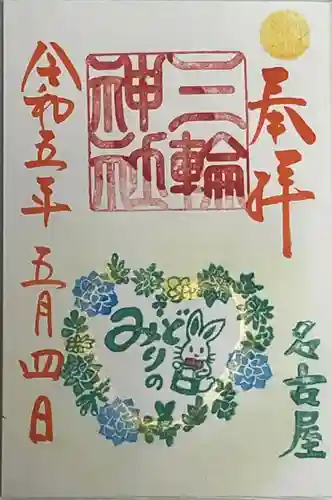 奉拝
三輪
神社
名古屋
みどりの日
令和五年 五月四日